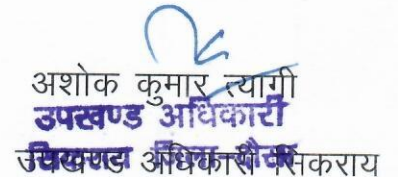 अशोक कुमार त्यागी
उपखण्ड अधिकारी
उपखण्ड अधिकारी सिकराय